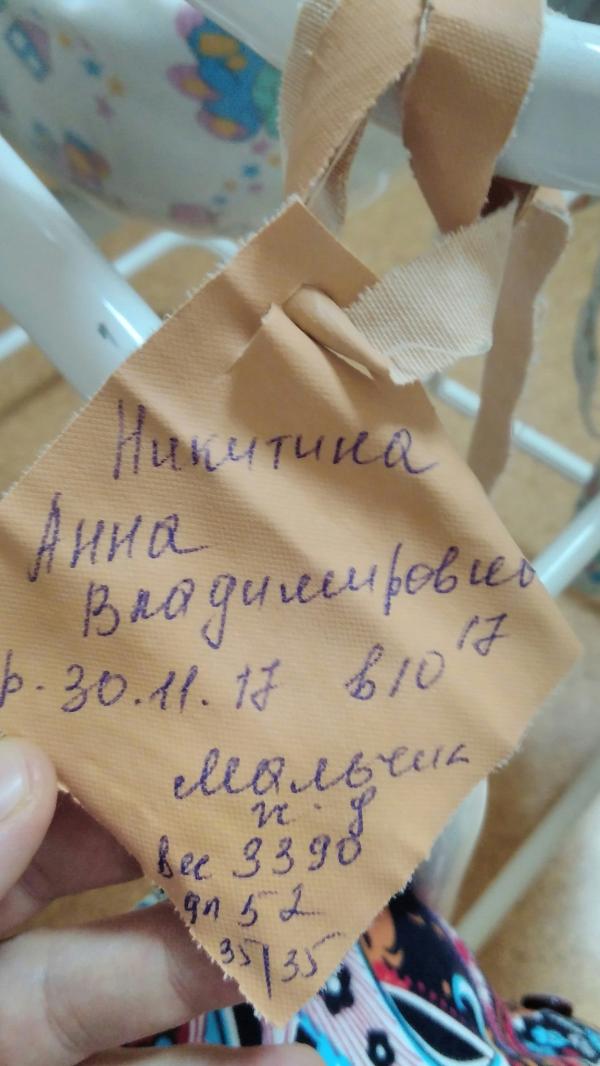 Никитина
Анна
Владимировна
р. 30.11.17 в 10 17
Мальчик
ж. д
Вес 3390
дл 52
35/35